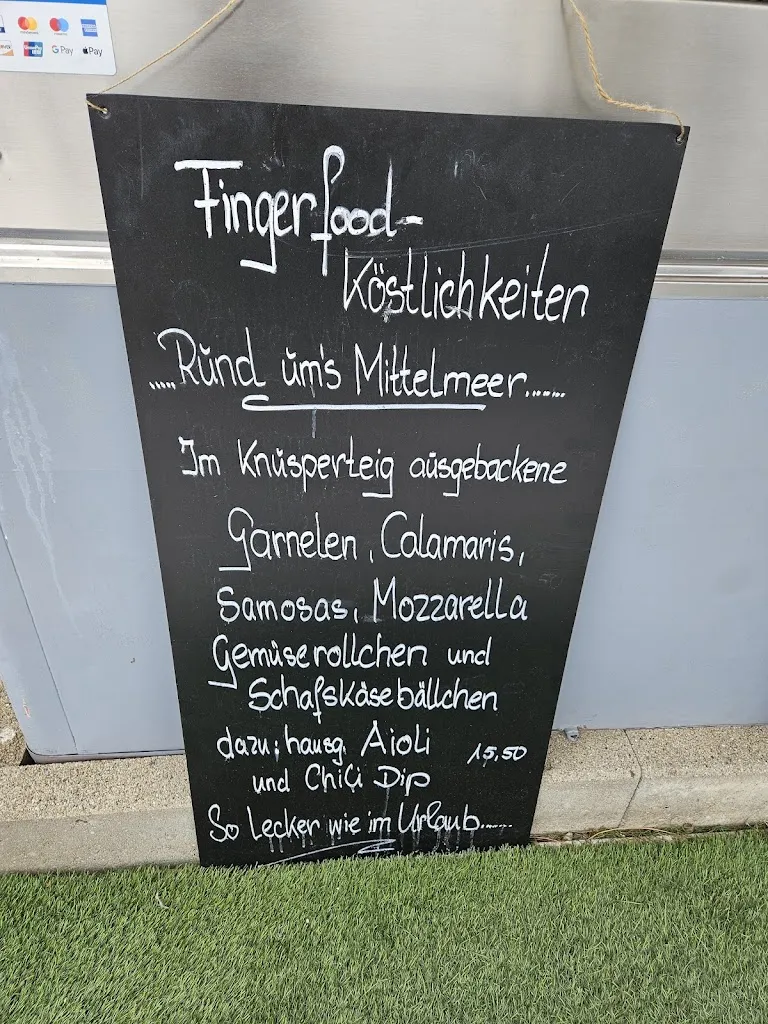 G Pay Pay
Fingerfood-
Köstlichkeiten
.....Rund um's Mittelmeer......
Im Knusperteig ausgebackene
Garnelen, Calamaris,
Samosas, Mozzarella
Gemüserollchen und
Schafskäsebällchen
dazu: hausg. Aioli 15,50
und Chili Dip
So lecker wie im Urlaub......